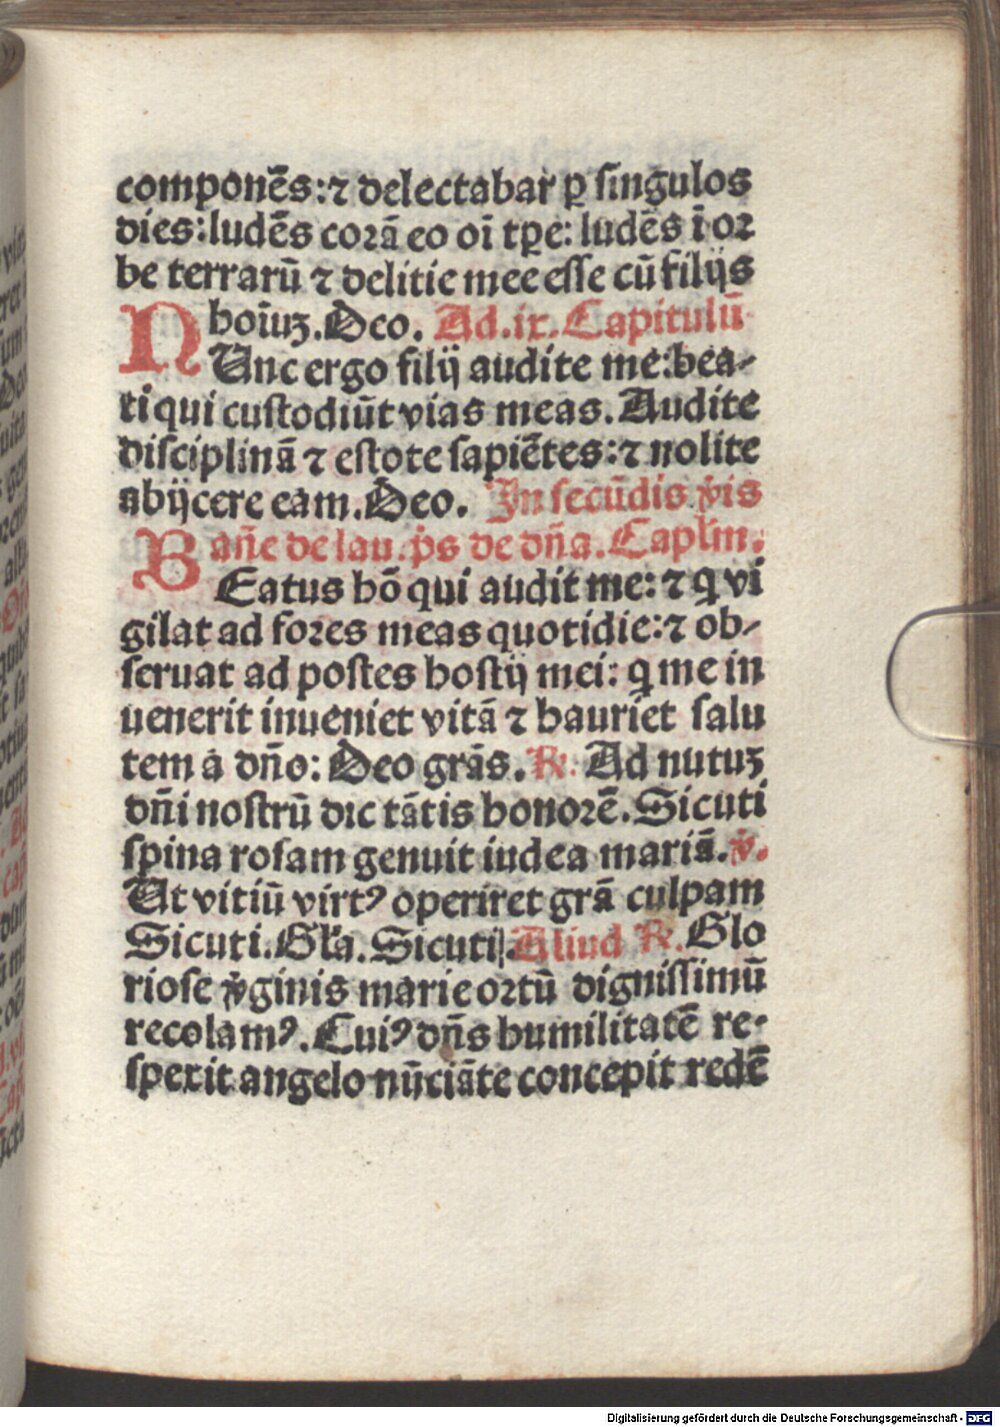 componēs:⁊ delectabar ꝑ singulos
dies:ludēs corā eo oī tꝑe: ludēs ī or
be terrarū ⁊ delitie mee esse cū filijs
hoīuꝫ.Deo. Ad.ix.Capitulū
NUnc ergo filij audite me:bea-
ti qui custodiūt vias meas.Audite
disciplinā ⁊ estote sapiētes:⁊ nolite
abijcere eam.Deo. In secūdis v̄ꝑis
añe de lau.p̄s de dña.Caplm.
BEatus hō qui audit me:⁊ q vi
gilat ad fores meas quotidie:⁊ ob-
seruat ad postes hostij mei: q me in
uenerit inueniet vitā ⁊ hauriet salu
tem a dño: Deo grās.℟. Ad nutuꝫ
dñi nostrū dic tātis honorē.Sicuti
spina rosam genuit iudea mariā.℣.
Ut vitiū virtꝰ operiret grā culpam
Sicuti.Gla.Sicuti.Aliud ℟.Glo
riose v̄ginis marie ortū dignissimū
recolamꝰ.Cuiꝰ dñs humilitatē re-
spexit angelo nūciāte concepit redē
Digitalisierung gefördert durch die Deutsche Forschungsgemeinschaft - DFG